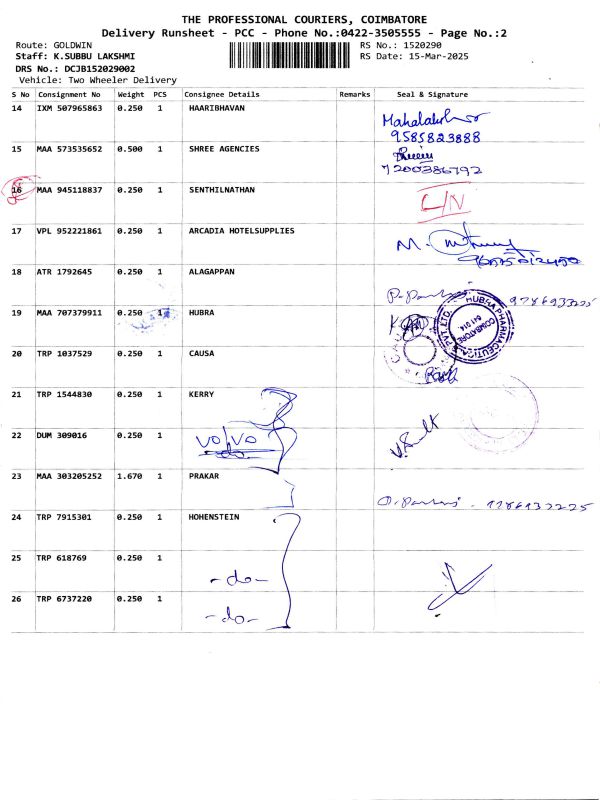 THE PROFESSIONAL COURIERS, COIMBATORE
Delivery Runsheet - PCC - Phone No.:0422-3505555 - Page No.:2
Route: GOLDWIN
RS No.: 1520290
Staff: K.SUBBU LAKSHMI
RS Date: 15-Mar-2025
DRS No.: DCJB152029002
Vehicle: Two Wheeler Delivery
S No Consignment No Weight PCS Consignee Details Remarks Seal & Signature
14 IXM 507965863 0.250 1 HAARIBHAVAN
9585823888
15 MAA 573535652 0.500 1 SHREE AGENCIES
7200386792
16 MAA 945118837 0.250 1 SENTHILNATHAN
17 VPL 952221861 0.250 1 ARCADIA HOTELSUPPLIES
18 ATR 1792645 0.250 1 ALAGAPPAN
19 MAA 707379911 0.250 1 HUBRA
HUBRA PHARMACEUTICALS PVT. LTD.
COIMBATORE
641 014
20 TRP 1037529 0.250 1 CAUSA
21 TRP 1544830 0.250 1 KERRY
22 DUM 309016 0.250 1 VOLVO
-do-
23 MAA 303205252 1.670 1 PRAKAR
24 TRP 7915301 0.250 1 HOHENSTEIN
25 TRP 618769 0.250 1
-do-
26 TRP 6737220 0.250 1
-do-